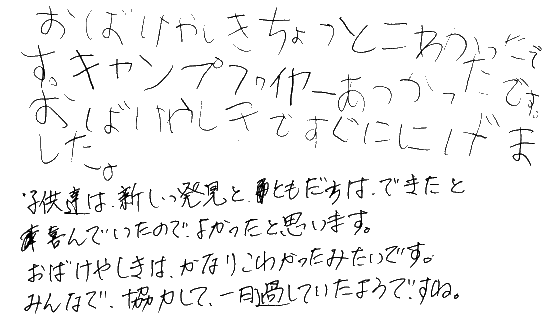 おばけやしきちょっとこわかったで
す。キャンプファイヤーあつかったです。
おばけやしきですぐににげま
した。
子供達は、新しい発見と、ともだちは、できたと
喜んでいたので、よかったと思います。
おばけやしきは、かなりこわかったみたいです。
みんなで、協力して、一日過していたようですね。